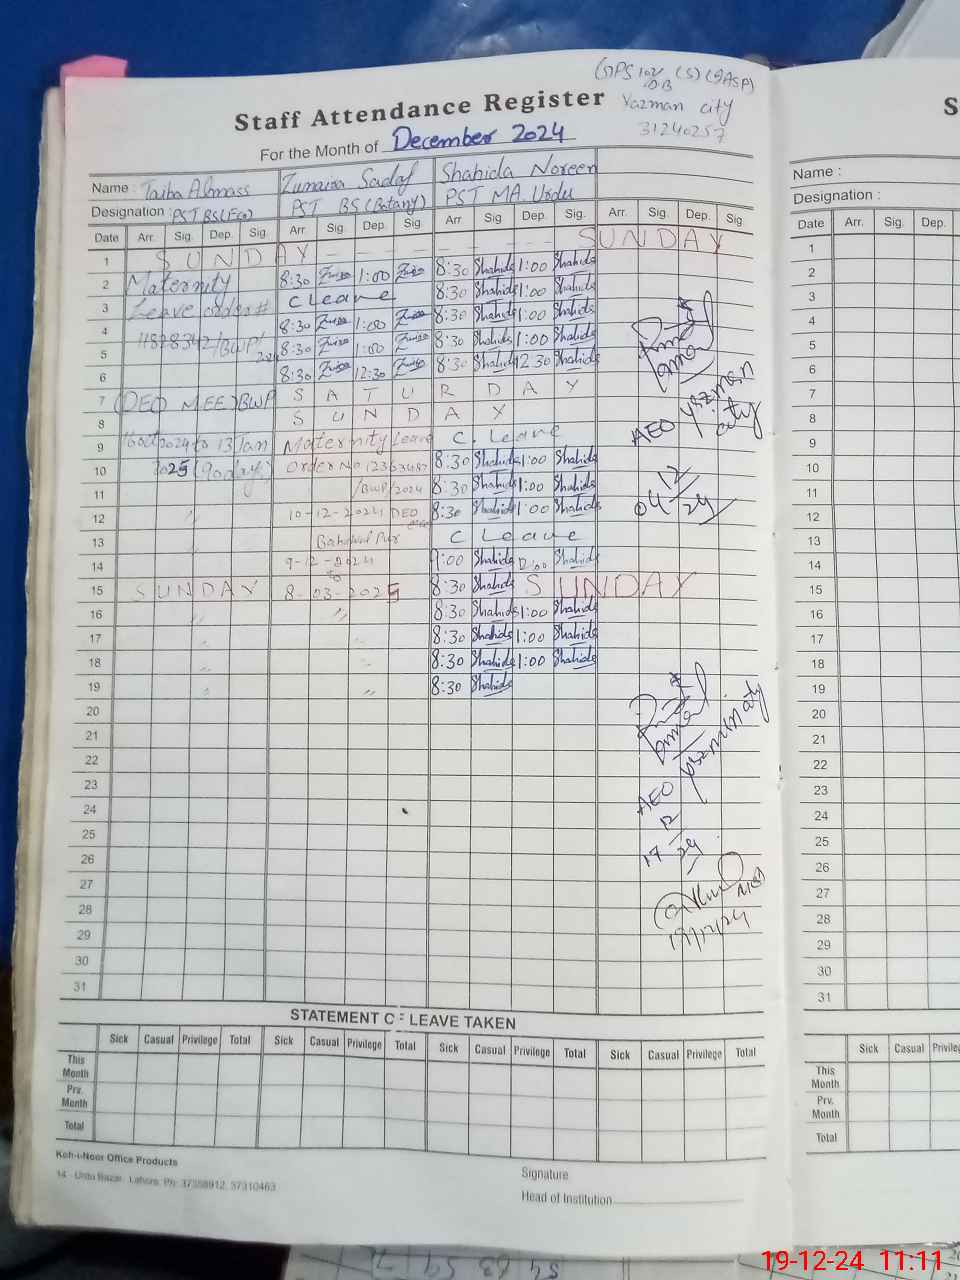 (S)(SASP)
Staff Attendance Register
Yazman city
31240257
For the Month of December 2024
S
Name : Taiba Almass Zumaira Sadaf Shahida Noreen
Designation : PST BS(Eco) PST BS (Botany) PST MA. Urdu
Name :
Designation :
Date Arr. Sig. Dep. Sig. Arr. Sig. Dep. Sig. Arr. Sig. Dep. Sig. Arr. Sig. Dep. Sig.
Date Arr. Sig. Dep.
1 SUNDAY SUNDAY
2 Maternity 8:30 1:00 8:30 Shahida 1:00 Shahida
3 Leave order # C Leave 8:30 Shahida 1:00 Shahida
4 8:30 1:00 8:30 Shahida 1:00 Shahida
5 /BWP/ 8:30 1:00 8:30 Shahida 1:00 Shahida
6 8:30 12:30 8:30 Shahida 12:30 Shahida
7 (DEO MEE) BWP SATURDAY
8 SUNDAY
9 16 oct 2024 to 13 Jan Maternity Leave C. Leave
10 2025 (90 days) Order No 8:30 Shahida 1:00 Shahida
11 /BWP/2024 8:30 Shahida 1:00 Shahida
12 10-12-2024 DEO 8:30 Shahida 1:00 Shahida
13 Bahawal Pur C Leave
14 9-12-2024 9:00 Shahida 12:00 Shahida
to
15 SUNDAY 8-03-2025 8:30 Shahida SUNDAY
16 8:30 Shahida 1:00 Shahida
17 8:30 Shahida 1:00 Shahida
18 8:30 Shahida 1:00 Shahida
19 8:30 Shahida
20
21
22
23
24
25
26
27
28
29
30
31
AEO yazman
city
04/12/24
AEO yazman city
17/12/24
19/12/24
1
2
3
4
5
6
7
8
9
10
11
12
13
14
15
16
17
18
19
20
21
22
23
24
25
26
27
28
29
30
31
STATEMENT OF LEAVE TAKEN
Sick Casual Privilege Total Sick Casual Privilege Total Sick Casual Privilege Total Sick Casual Privilege Total
This Month
Prv. Month
Total
Sick Casual Privilege
This Month
Prv. Month
Total
Koh-i-Noor Office Products
14 - Urdu Bazar, Lahore. Ph: 37358912, 37310463
Signature
Head of Institution
19-12-24 11:11